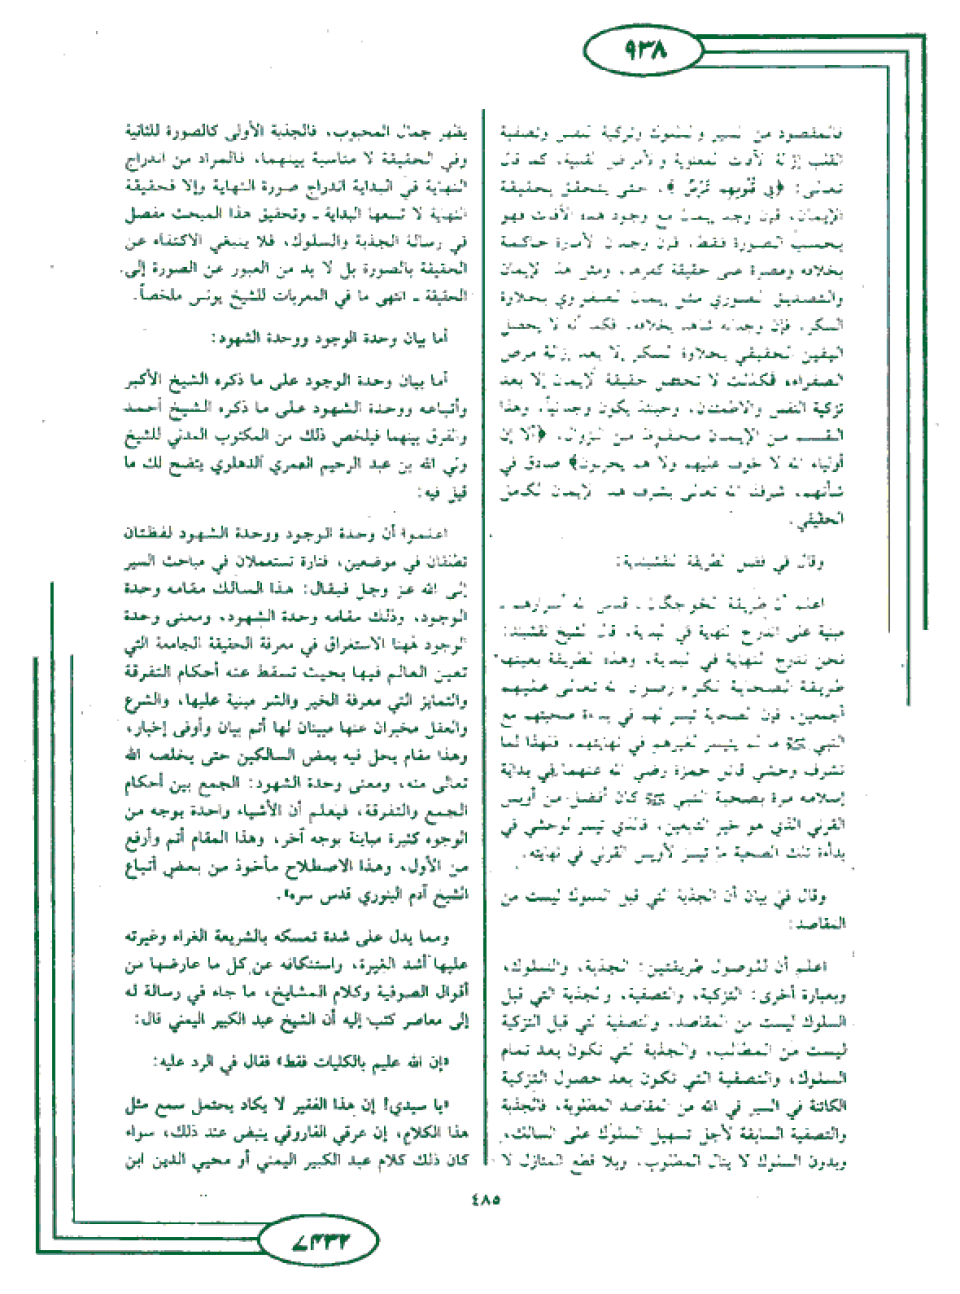 ٩٣٨
فالمقصود من السير والسلوك وتزكية النفس وتصفية
القلب إزالة الآفات المعنوية والأمراض القلبية، كما قال
تعالى: ﴿في قلوبهم مرض﴾، حتى يتحقق بحقيقة
الإيمان، فإن وجد إيمان مع وجود هذه الآفات فهو
بحسب الصورة فقط، فإن وجدان الأمارة حاكمة
بخلافه ومصرة على حقيقة كفرها، ومثل هذا الإيمان
والتصديق الصوري مثل إيمان الصفراوي بحلاوة
السكر، فإن وجدانه شاهد بخلافه، فكما أنه لا يحصل
اليقين الحقيقي بحلاوة السكر إلا بعد إزالة مرض
الصفراء، فكذلك لا تحصل حقيقة الإيمان إلا بعد
تزكية النفس والاطمئنان، وحينئذ يكون وجدانياً، وهذا
القسم من الإيمان محفوظ من الزوال، ﴿ألا إن
أولياء الله لا خوف عليهم ولا هم يحزنون﴾ صادق في
شأنهم، شرفنا الله تعالى بشرف هذا الإيمان الكامل
الحقيقي.
وقال في فضل الطريقة النقشبندية:
اعلم أن طريقة الخواجگان ـ قدس الله أسرارهم ـ
مبنية على اندراج النهاية في البداية، قال الشيخ نقشبند:
نحن ندرج النهاية في البداية، وهذه الطريقة بعينها
طريقة الصحابة الكرام رضوان الله تعالى عليهم
أجمعين، فإن الصحابة تيسر لهم في بداءة صحبتهم مع
النبي ﷺ ما لم يتيسر لغيرهم في نهايتهم، فلهذا لما
تشرف وحشي قاتل حمزة رضي الله عنهما في بداية
إسلامه مرة بصحبة النبي ﷺ كان أفضل من أويس
القرني الذي هو خير التابعين، فالذي تيسر لوحشي في
بداءة تلك الصحبة ما تيسر لأويس القرني في نهايته.
وقال في بيان أن الجذبة التي قبل السلوك ليست من
المقاصد:
اعلم أن للوصول طريقتين: الجذبة، والسلوك،
وبعبارة أخرى: التزكية، والتصفية، والجذبة التي قبل
السلوك ليست من المقاصد، والتصفية التي قبل التزكية
ليست من المطالب، والجذبة التي تكون بعد تمام
السلوك، والتصفية التي تكون بعد حصول التزكية
الكائنة في السير في الله من المقاصد المطلوبة، فالجذبة
والتصفية السابقة لأجل تسهيل السلوك على السالك،
وبدون السلوك لا ينال المطلوب، وبلا قطع المنازل لا
يظهر جمال المحبوب، فالجذبة الأولى كالصورة للثانية
وفي الحقيقة لا مناسبة بينهما، فالمراد من اندراج
النهاية في البداية اندراج صورة النهاية وإلا فحقيقة
النهاية لا تسعها البداية ـ وتحقيق هذا المبحث مفصل
في رسالة الجذبة والسلوك، فلا ينبغي الاكتفاء عن
الحقيقة بالصورة بل لا بد من العبور عن الصورة إلى
الحقيقة ـ انتهى ما في المعربات للشيخ يونس ملخصاً.
أما بيان وحدة الوجود ووحدة الشهود:
أما بيان وحدة الوجود على ما ذكره الشيخ الأكبر
وأتباعه ووحدة الشهود على ما ذكره الشيخ أحمد
والفرق بينهما فيلخص ذلك من المكتوب المدني للشيخ
ولي الله بن عبد الرحيم العمري الدهلوي يتضح لك ما
قيل فيه:
اعلموا أن وحدة الوجود ووحدة الشهود لفظتان
تطلقان في موضعين، فتارة تستعملان في مباحث السير
إلى الله عز وجل فيقال: هذا السالك مقامه وحدة
الوجود، وذلك مقامه وحدة الشهود، ومعنى وحدة
الوجود لههنا الاستغراق في معرفة الحقيقة الجامعة التي
تعين العالم فيها بحيث تسقط عنه أحكام التفرقة
والتمايز التي معرفة الخير والشر مبنية عليها، والشرع
والعقل مخبران عنها مبينان لها أتم بيان وأوفى إخبار،
وهذا مقام يحل فيه بعض السالكين حتى يخلصه الله
تعالى منه، ومعنى وحدة الشهود: الجمع بين أحكام
الجمع والتفرقة، فيعلم أن الأشياء واحدة بوجه من
الوجوه كثيرة مباينة بوجه آخر، وهذا المقام أتم وأرفع
من الأول، وهذا الاصطلاح مأخوذ من بعض أتباع
الشيخ آدم البنوري قدس سره».
ومما يدل على شدة تمسكه بالشريعة الغراء وغيرته
عليها أشد الغيرة، واستنكافه عن كل ما عارضها من
أقوال الصوفية وكلام المشايخ، ما جاء في رسالة له
إلى معاصر كتب إليه أن الشيخ عبد الكبير اليمني قال:
«إن الله عليم بالكليات فقط» فقال في الرد عليه:
«يا سيدي! إن هذا الفقير لا يكاد يحتمل سمع مثل
هذا الكلام، إن عرقي الفاروقي ينبض عند ذلك، سواء
كان ذلك كلام عبد الكبير اليمني أو محيي الدين ابن
٤٨٥